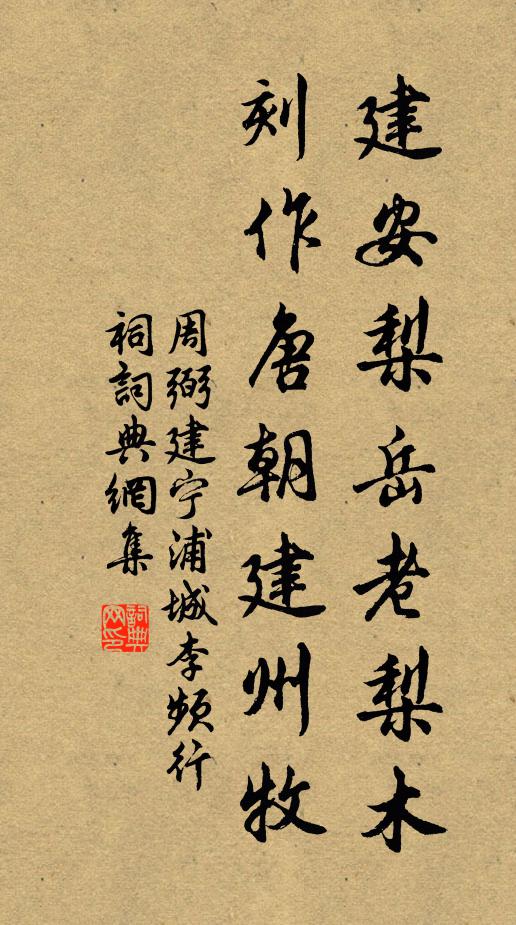 建安梨岳老梨木
刻作唐朝建州牧
周弼建宁浦城李频行
祠詞典網集
詞典网印